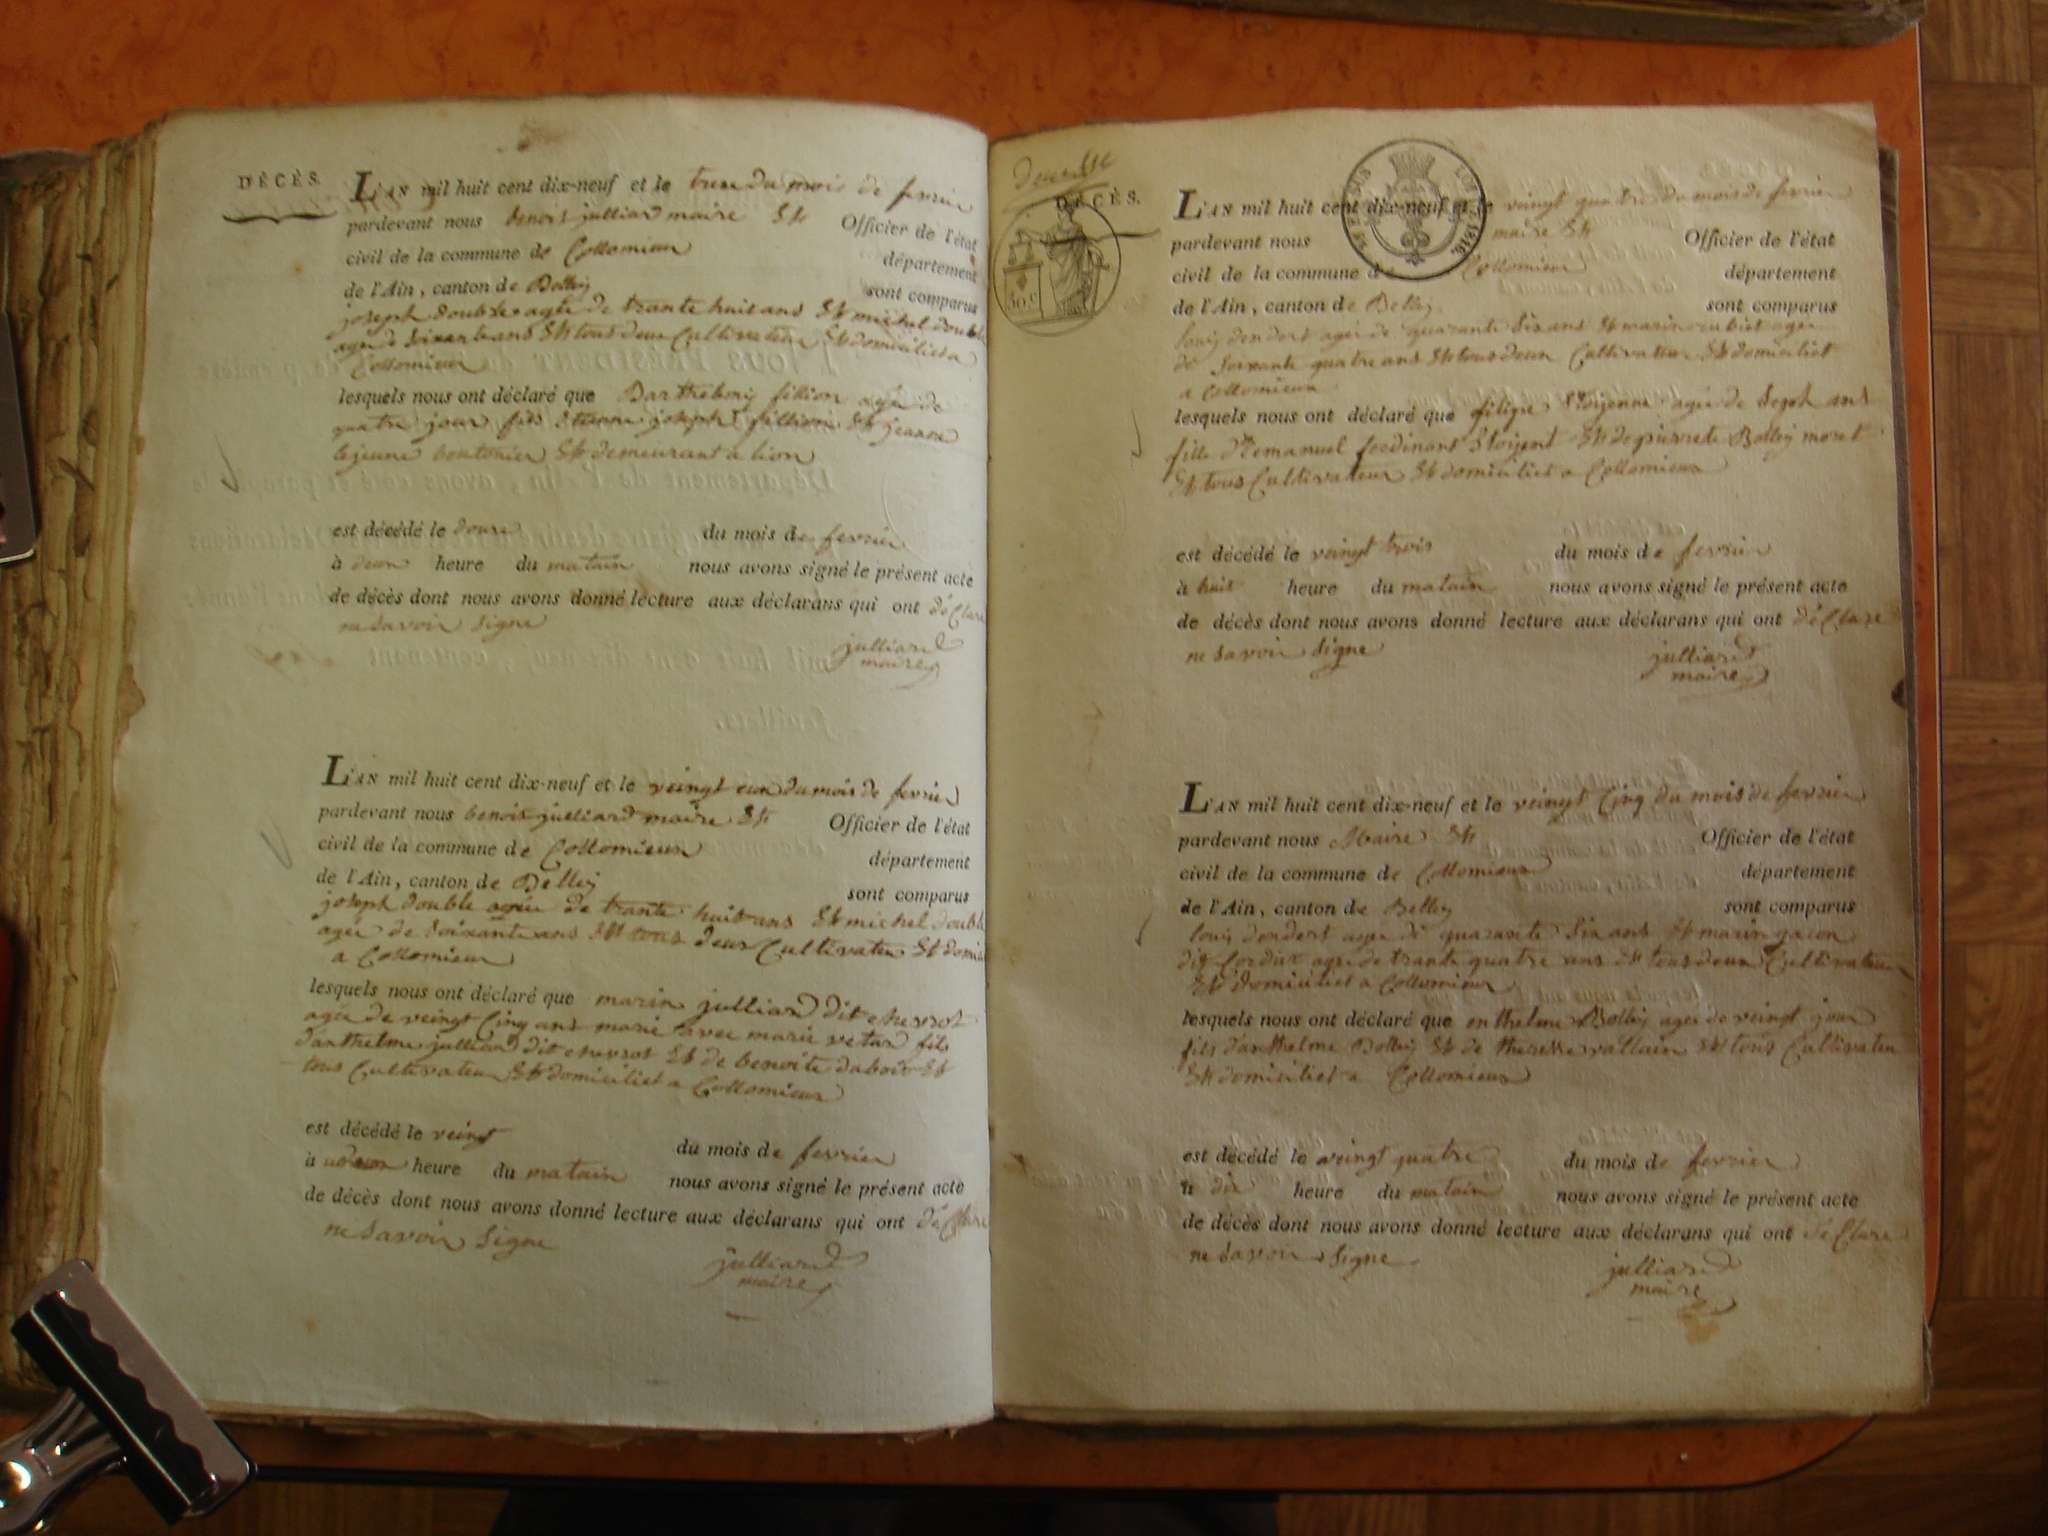 DÉCÈS.
L'AN mil huit cent dix-neuf et le treze du mois de fevrier
pardevant nous benois julliard maire Et Officier de l'état
civil de la commune de Collomieux département
de l'Ain, canton de Belley sont comparus
joseph double agée de trante huit ans Et michel double
agée de soixante ans Et tous deux Cultivateur Et domiciliet a
Collomieux
lesquels nous ont déclaré que Barthelemy fillion agée de
quatre jour fils Etienne joseph fillion Et jeanne
lejeune boutonier Et demeurant a lion
est décédé le douze du mois de fevrier
à deux heure du matain nous avons signé le présent acte
de décès dont nous avons donné lecture aux déclarans qui ont déClare
ne savoir signe
julliard
maire
L'AN mil huit cent dix-neuf et le veingt eun du mois de fevrier
pardevant nous benois julliard maire Et Officier de l'état
civil de la commune de Collomieux département
de l'Ain, canton de Belley sont comparus
joseph double agée de trante huit ans Et michel double
agée de soixante ans Et tous deux Cultivateur Et domici
a Collomieux
lesquels nous ont déclaré que marin julliard dit chevrot
agée de veingt Cinq ans marié avec marie vetard fils
d'anthelme julliard dit chevrot Et de benoite Et
tous Cultivateur Et domiciliet a Collomieux
est décédé le veingt du mois de fevrier
à heure du matain nous avons signé le présent acte
de décès dont nous avons donné lecture aux déclarans qui ont déClare
ne savoir signe
julliard
maire
DÉCÈS.
30 C
1816
L'AN mil huit cent dix-neuf et le veingt quatre du mois de fevrier
pardevant nous maire Et Officier de l'état
civil de la commune de Collomieux département
de l'Ain, canton de Belley sont comparus
louis dendert agée de quarante six ans Et marin rubiet agée
de soixante quatre ans Et tous deux Cultivateur Et domiciliet
a Collomieux
lesquels nous ont déclaré que agée de sept ans
fille d'Emanuel ferdinant Et de pierrete Belley moret
Et tous Cultivateur Et domiciliet a Collomieux
est décédé le veingt trois du mois de fevrier
à huit heure du matain nous avons signé le présent acte
de décès dont nous avons donné lecture aux déclarans qui ont déClare
ne savoir signe
julliard
maire
L'AN mil huit cent dix-neuf et le veingt Cinq du mois de fevrier
pardevant nous Maire Et Officier de l'état
civil de la commune de Collomieux département
de l'Ain, canton de Belley sont comparus
louis dendert agée de quarante six ans Et marin gacon
dit Cordier agée de trante quatre ans Et tous deux Cultivateur
Et domiciliet a Collomieux
lesquels nous ont déclaré que enthelme Belley agée de veingt jour
fils d'anthelme Belley Et de theresse vallain Et tous Cultivateur
Et domiciliet a Collomieux
est décédé le veingt quatre du mois de fevrier
à dix heure du matain nous avons signé le présent acte
de décès dont nous avons donné lecture aux déclarans qui ont déClare
ne savoir signe
julliard
maire